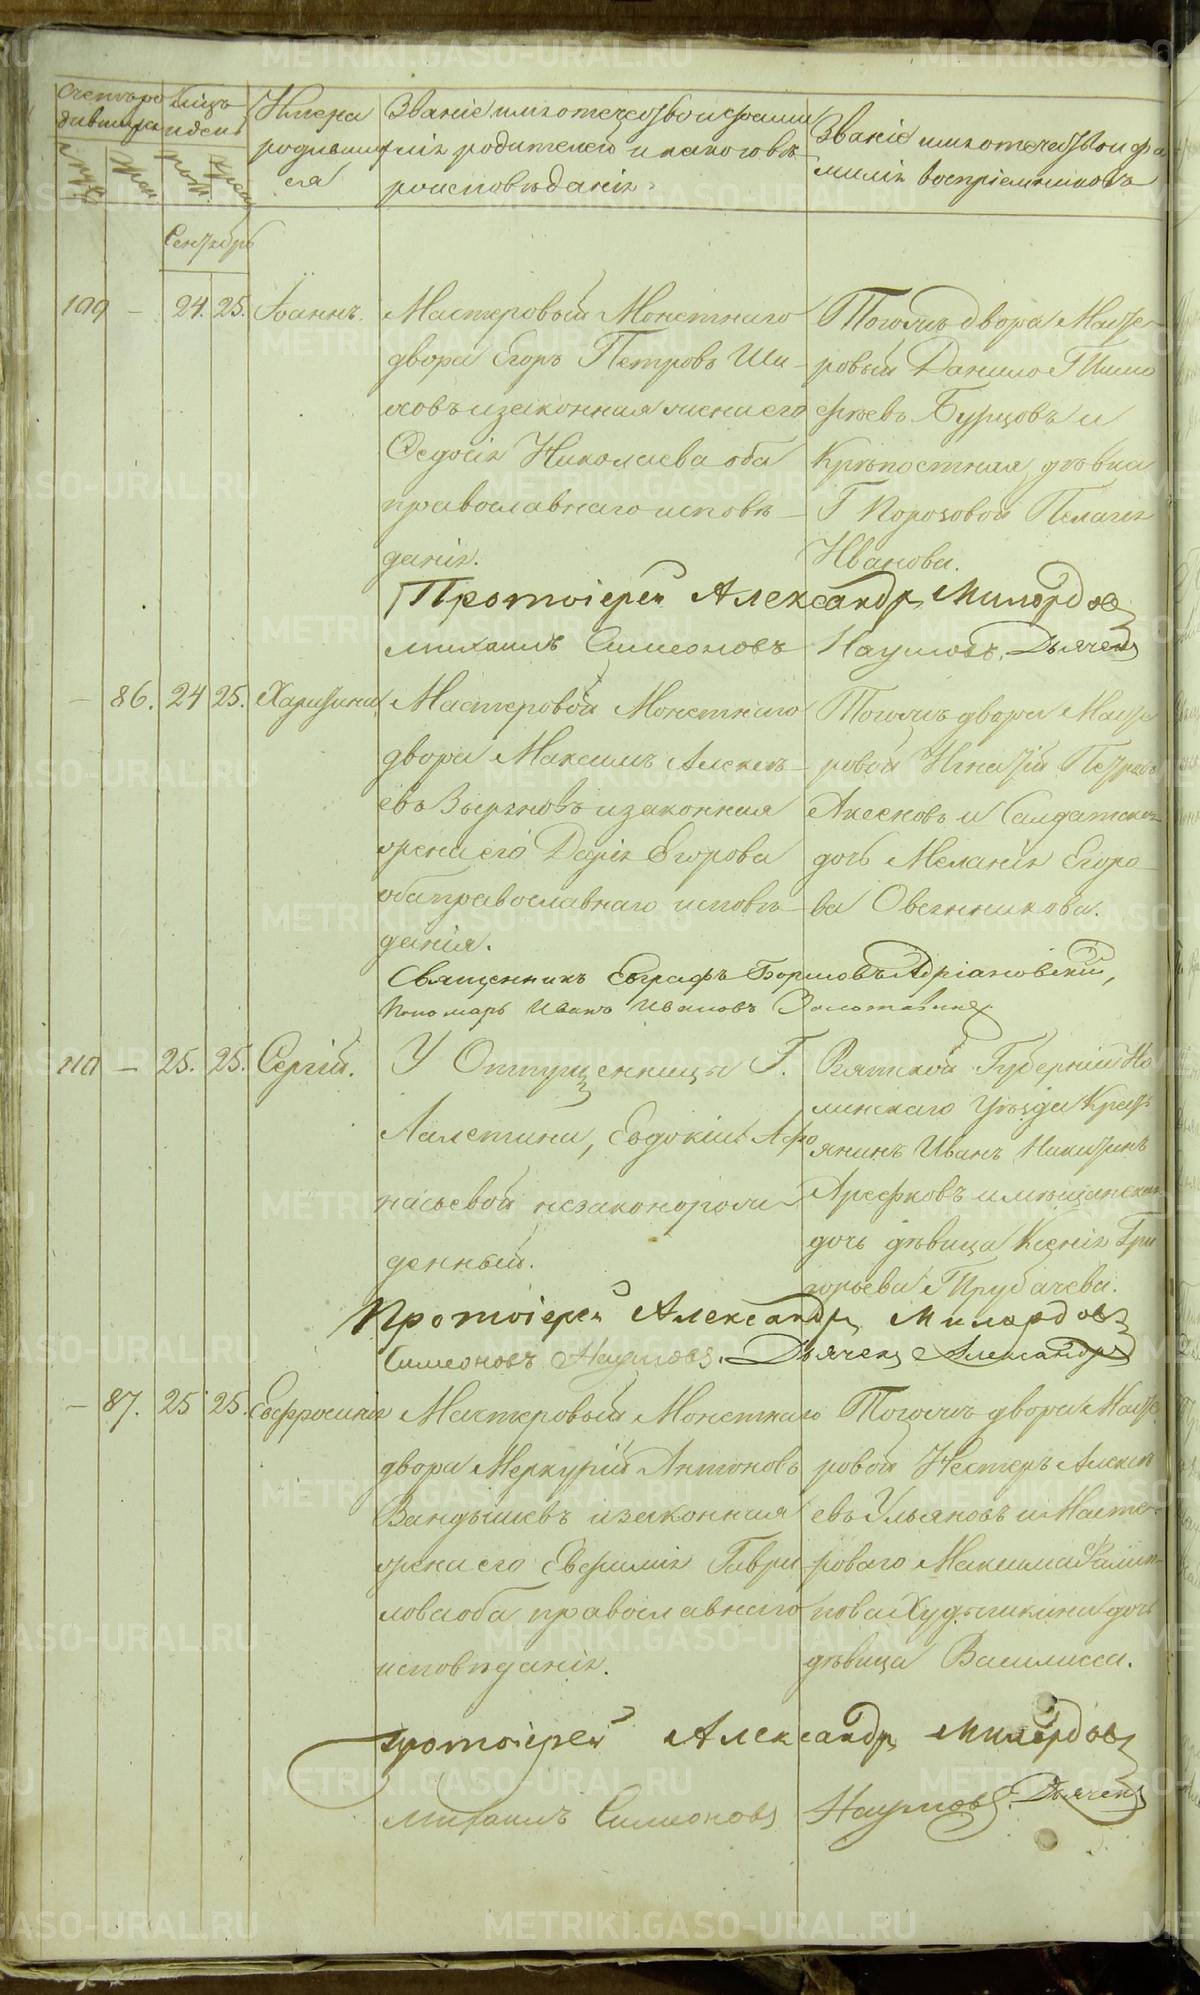 Счетъ родившихся
Мѣсяцъ и день
Имена родившихся
Званіе имя отечество и фамилія родителей и какого вѣроисповѣданія.
Званіе имя отечество и фамилія воспріемниковъ
муж.
жен.
рож.
крещ.
Сентябрь
109 — 24. 25. Іоаннъ.
Мастеровый Монетнаго
двора Егоръ Петровъ
и законная жена его
Ѳедосія Николаева оба
православнаго исповѣ-
данія.
Тогожъ двора Масте-
ровый Данило Тимо
феевъ Бурцовъ и
Крѣпостная дѣвка
Г. Порозовой Пелагія
Иванова.
Протоіерей Александръ Милордовъ
Михаилъ Симеоновъ Наумовъ. Дьячекъ
— 86. 24 25. Харитина
Мастеровой Монетнаго
двора Максимъ Алексѣ-
евъ и законная
жена его Дарія Егорова
оба православнаго исповѣ-
данія.
Тогожъ двора Масте
ровой Игнатій Петровъ
Аксеновъ и Салдатская
дочь Меланія Егоро-
ва Овсянникова.
Священникъ Евграфъ Борисовъ Адріановскій,
Пономарь Иванъ Ивановъ Золотавинъ
110 — 25. 25. Сергій.
У Отпущенницы Г.
Лалетина, Евдокіи Афо
насьевой незаконорож
денный.
Вятской Губерніи Но
линскаго Уѣзда Крест
янинъ Иванъ Никитинъ
Арефковъ и мѣщанская
дочь дѣвица Ксенія Гри
горьева Трубачева.
Протоіерей Александръ Милордовъ
Симеоновъ Наумовъ. Дьячекъ Александръ
— 87. 25 25. Евфросинія
Мастеровый Монетнаго
двора Меркурій Антоновъ
Вандышевъ и законная
жена его Евфимія Гаври
лова оба православнаго
исповѣданія.
Тогожъ двора Масте
ровой Нестеръ Алексѣ
евъ Ульяновъ и Масте-
роваго Максима Филип-
пова Худышкина дочь
дѣвица Василисса.
Протоіерей Александръ Милордовъ
Михаилъ Симеоновъ Наумовъ. Дьячекъ
METRIKI.GASO-URAL.RU